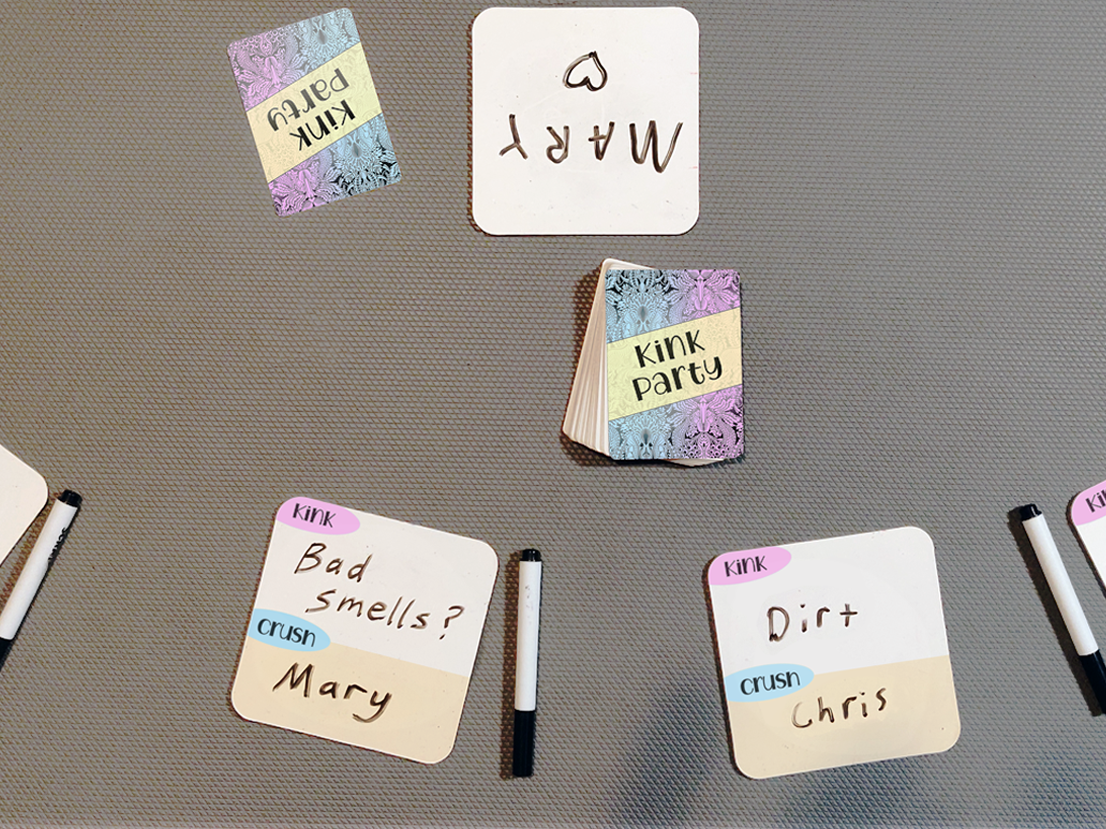 Kink
Party
♡
MARY
Kink
Party
Kink
Bad
smells?
Crush
Mary
Kink
Dirt
Crush
Chris